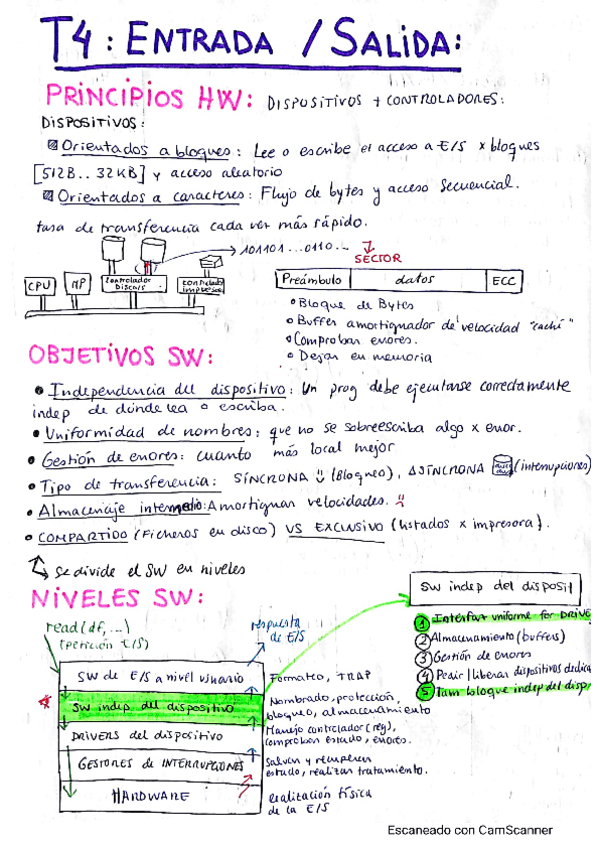 T4: ENTRADA / SALIDA:
PRINCIPIOS HW: DISPOSITIVOS + CONTROLADORES:
DISPOSITIVOS:
Orientados a bloques: Lee o escribe el acceso a E/S x bloques
[512B.. 32KB] y acceso aleatorio
Orientados a caracteres: Flujo de bytes y acceso secuencial.
tasa de transferencia cada vez más rápido.
101101...0110...
SECTOR
CPU
MP
Controlador Discos
Controlador impresora
Preámbulo datos ECC
Bloque de Bytes
Buffer amortiguador de velocidad "caché"
Comprobar errores.
Dejar en memoria
OBJETIVOS SW:
Independencia del dispositivo: Un prog debe ejecutarse correctamente
indep de donde lea o escriba.
Uniformidad de nombres: que no se sobreescriba algo x error.
Gestión de errores: cuanto más local mejor.
Tipo de transferencia: SÍNCRONA (Bloqueo), ASÍNCRONA (interrupciones)
Almacenaje intermedio: Amortiguan velocidades.
COMPARTIDO (Ficheros en disco) VS EXCLUSIVO (listados x impresora).
Se divide el SW en niveles
NIVELES SW:
read(df,...)
(petición E/S)
respuesta
de E/S
SW de E/S a nivel usuario
Formateo, TRAP
SW indep. del dispositivo
Nombrado, protección,
bloqueo, almacenamiento
DRIVERS del dispositivo
Manejo controlador (reg),
comprobar estado, errores.
GESTORES DE INTERRUPCIONES
Salvar y recuperar
estado, realizar tratamiento.
HARDWARE
realización física
de la E/S
SW indep del disposit
1 Interfaz uniforme for DRIVE
2 Almacenamiento (buffers)
3 Gestión de errores
4 Pedir/liberar dispositivos dedica
5 Tam bloque indep del disp
Escaneado con CamScanner